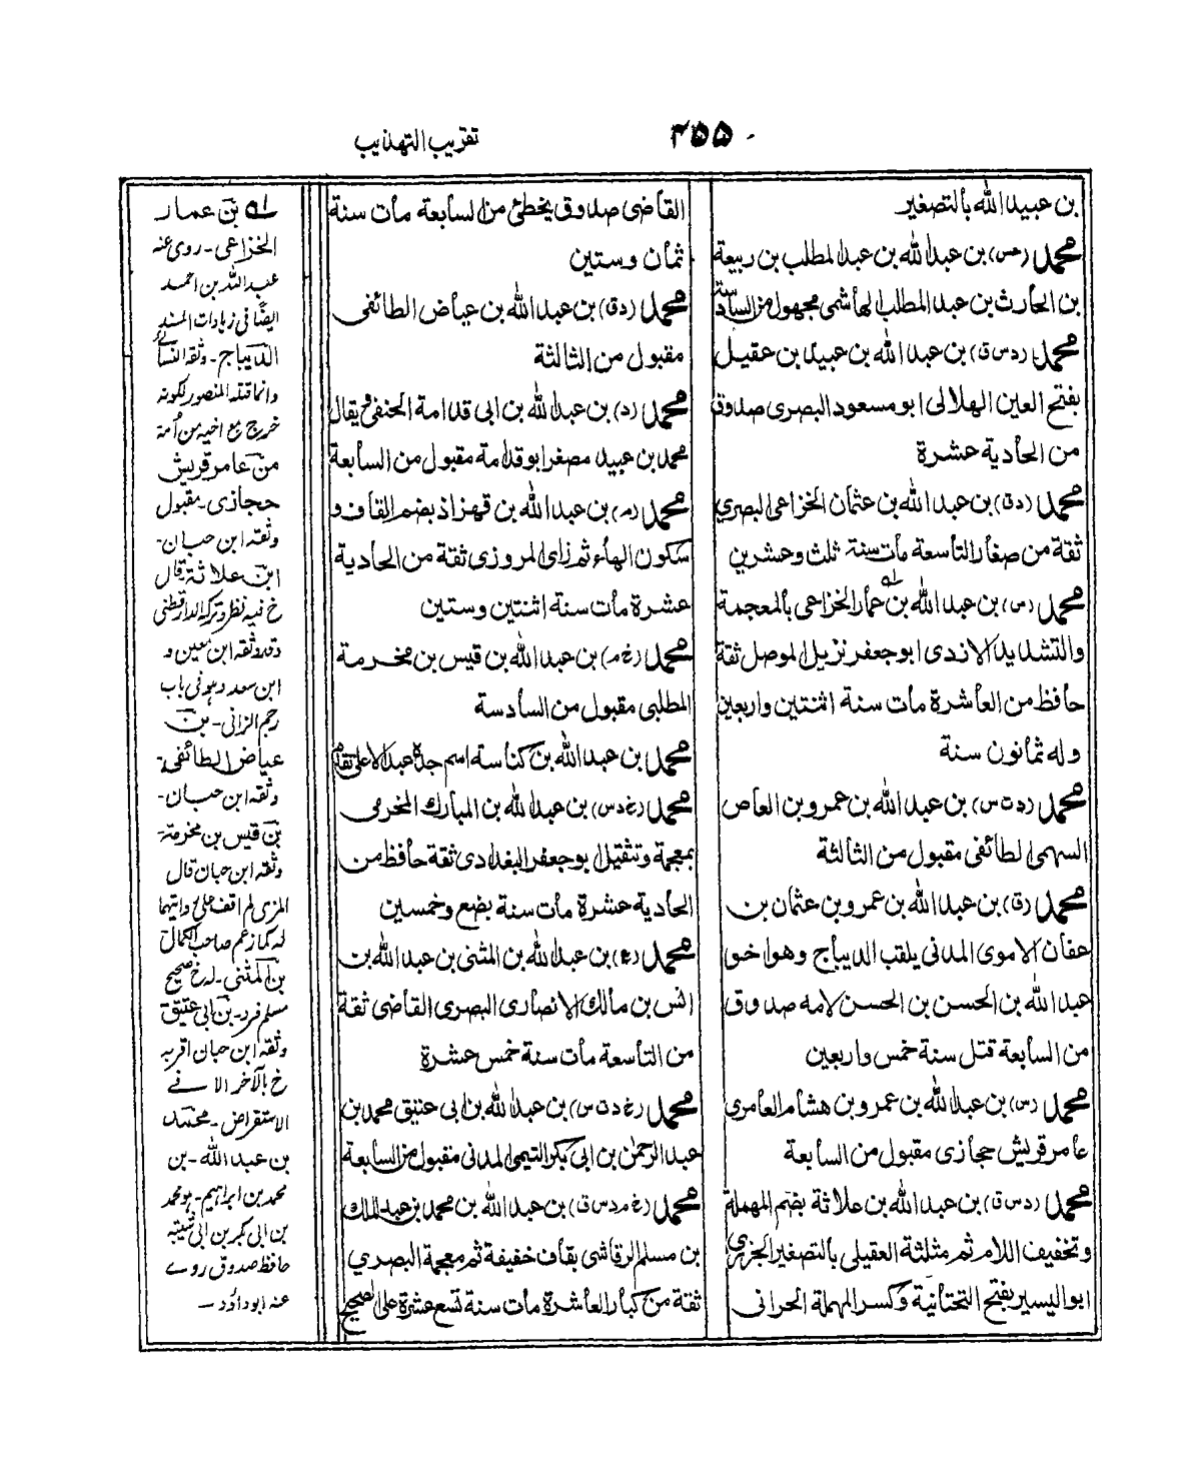 ٣٥٥
تقريب التهذيب
بن عبيد الله بالتصغير
محمد (س) بن عبد الله بن عبد المطلب بن ربيعة
بن الحارث بن عبد المطلب الهاشمى مجهول من السادسة
محمد (د س ق) بن عبد الله بن عبيد بن عقيل
بفتح العين الهلالى ابو مسعود البصرى صدوق
من الحادية عشرة
محمد (د ق) بن عبد الله بن عثمان الخزاعى البصري
ثقة من صغار التاسعة مات سنة ثلث وعشرين
محمد (س) بن عبد الله بن عمار الخزاعى بالمعجمة
والتشديد الازدى ابو جعفر نزيل الموصل ثقة
حافظ من العاشرة مات سنة اثنتين واربعين
وله ثمانون سنة
محمد (د ت س) بن عبد الله بن عمرو بن العاص
السهمى الطائفى مقبول من الثالثة
محمد (ق) بن عبد الله بن عمرو بن عثمان بن
عفان الاموى المدنى يلقب الديباج وهو اخو
عبد الله بن الحسن بن الحسن لامه صدوق
من السابعة قتل سنة خمس واربعين
محمد (س) بن عبد الله بن عمرو بن هشام العامرى
عامر قريش حجازى مقبول من السابعة
محمد (د س ق) بن عبد الله بن علاثة بضم المهملة
وتخفيف اللام ثم مثلثة العقيلى بالتصغير الجزرى
ابو اليسير بفتح التحتانية وكسر المهملة الحرانى
القاضى صدوق يخطئ من السابعة مات سنة
ثمان وستين
محمد (د ق) بن عبد الله بن عياض الطائفى
مقبول من الثالثة
محمد (د) بن عبد الله بن ابى قدامة الحنفى ويقال
محمد بن عبيد مصغر ابو قدامة مقبول من السابعة
محمد (م) بن عبد الله بن قهزاذ بضم القاف و
سكون الهاء ثم زاى المروزى ثقة من الحادية
عشرة مات سنة اثنتين وستين
محمد (خ م) بن عبد الله بن قيس بن مخرمة
المطلبى مقبول من السادسة
محمد بن عبد الله بن كناسة اسم جده عبد الاعلى تقدم
محمد (خ د س) بن عبد الله بن المبارك المخرمى
بمعجمة وتثقيل ابو جعفر البغدادى ثقة حافظ من
الحادية عشرة مات سنة بضع وخمسين
محمد (ع) بن عبد الله بن المثنى بن عبد الله بن
انس بن مالك الانصارى البصرى القاضى ثقة
من التاسعة مات سنة خمس عشرة
محمد (خ د ت س) بن عبد الله بن ابى عتيق محمد بن
عبد الرحمن بن ابى بكر التيمى المدنى مقبول من السابعة
محمد (خ م د س ق) بن عبد الله بن محمد بن عبد الملك
بن مسلم الرقاشى بقاف خفيفة ثم معجمة البصري
ثقة من كبار العاشرة مات سنة تسع عشرة على الصحيح
له بن عمار
الخزاعى - روى عنه
عبد الله بن احمد
ايضًا فى زيادات المسند
الديباج - وثقه النسائى
وانما قتله المنصور لكونه
خرج مع اخيه من أمه
من عامر قريش
حجازى - مقبول
وثقه ابن حبان -
ابن علاثة قال
خ فيه نظر وتركه الدارقطنى
وقد وثقه ابن معين و
ابن سعد وهو فى باب
رجم الزانى - بن
عياض الطائفى -
وثقه ابن حبان -
بن قيس بن مخرمة -
وثقه ابن حبان قال
المزى لم اقف على روايتهما
له كما زعم صاحب الكمال
بن المثنى - له خ صحيح
مسلم فرد - بن ابى عتيق
وثقه ابن حبان اقربه
خ بالآخر الا فے
الاستقراض - محمد
بن عبد الله - بن
محمد بن ابراهيم - هو محمد
بن ابى بكر بن ابى شيبة
حافظ صدوق روے
عنه ابوداؤد -